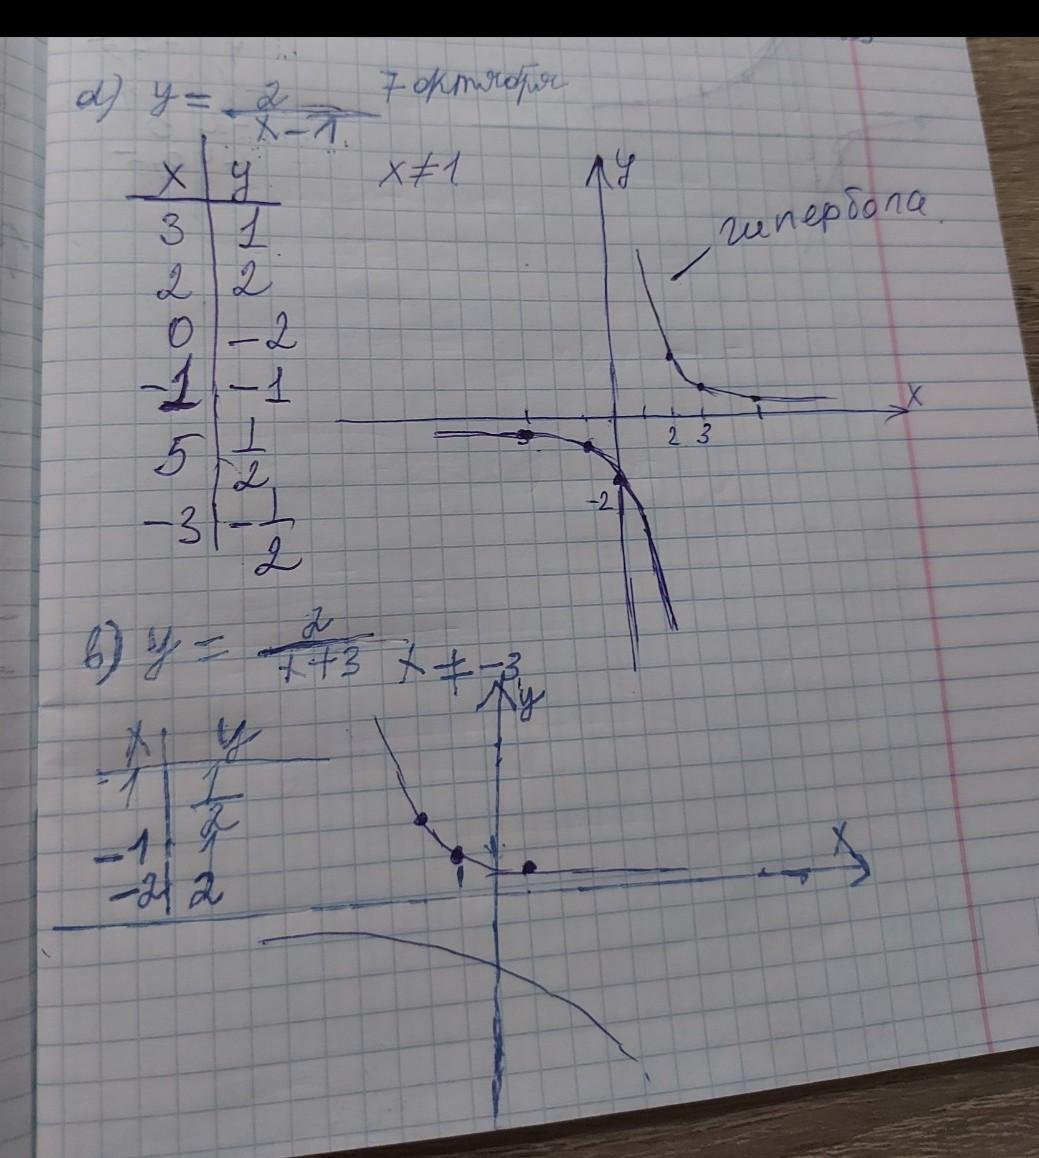 а) y = 2/(x-1) 7 октября
x | y x≠1
3 | 1
2 | 2
0 | -2
-1 | -1
5 | 1/2
-3 | -1/2
y
гипербола
x
2 3
-2
в) y = 2/(x+3) x ≠ -3
y
x | y
-1 | 1/2
-1 | 1
-2 | 2
x